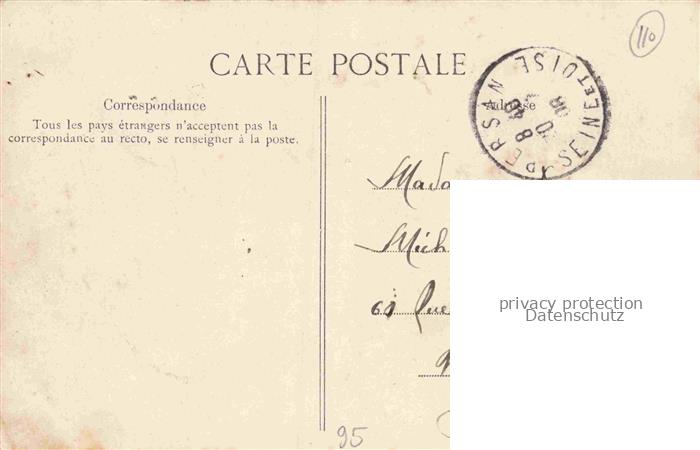 110
CARTE POSTALE
Correspondance
Adresse
Tous les pays étrangers n'acceptent pas la
correspondance au recto, se renseigner à la poste.
PERSAN
SEINE ET OISE
8 40
08
Mada
Mich
61 Rue
privacy protection
Datenschutz
95